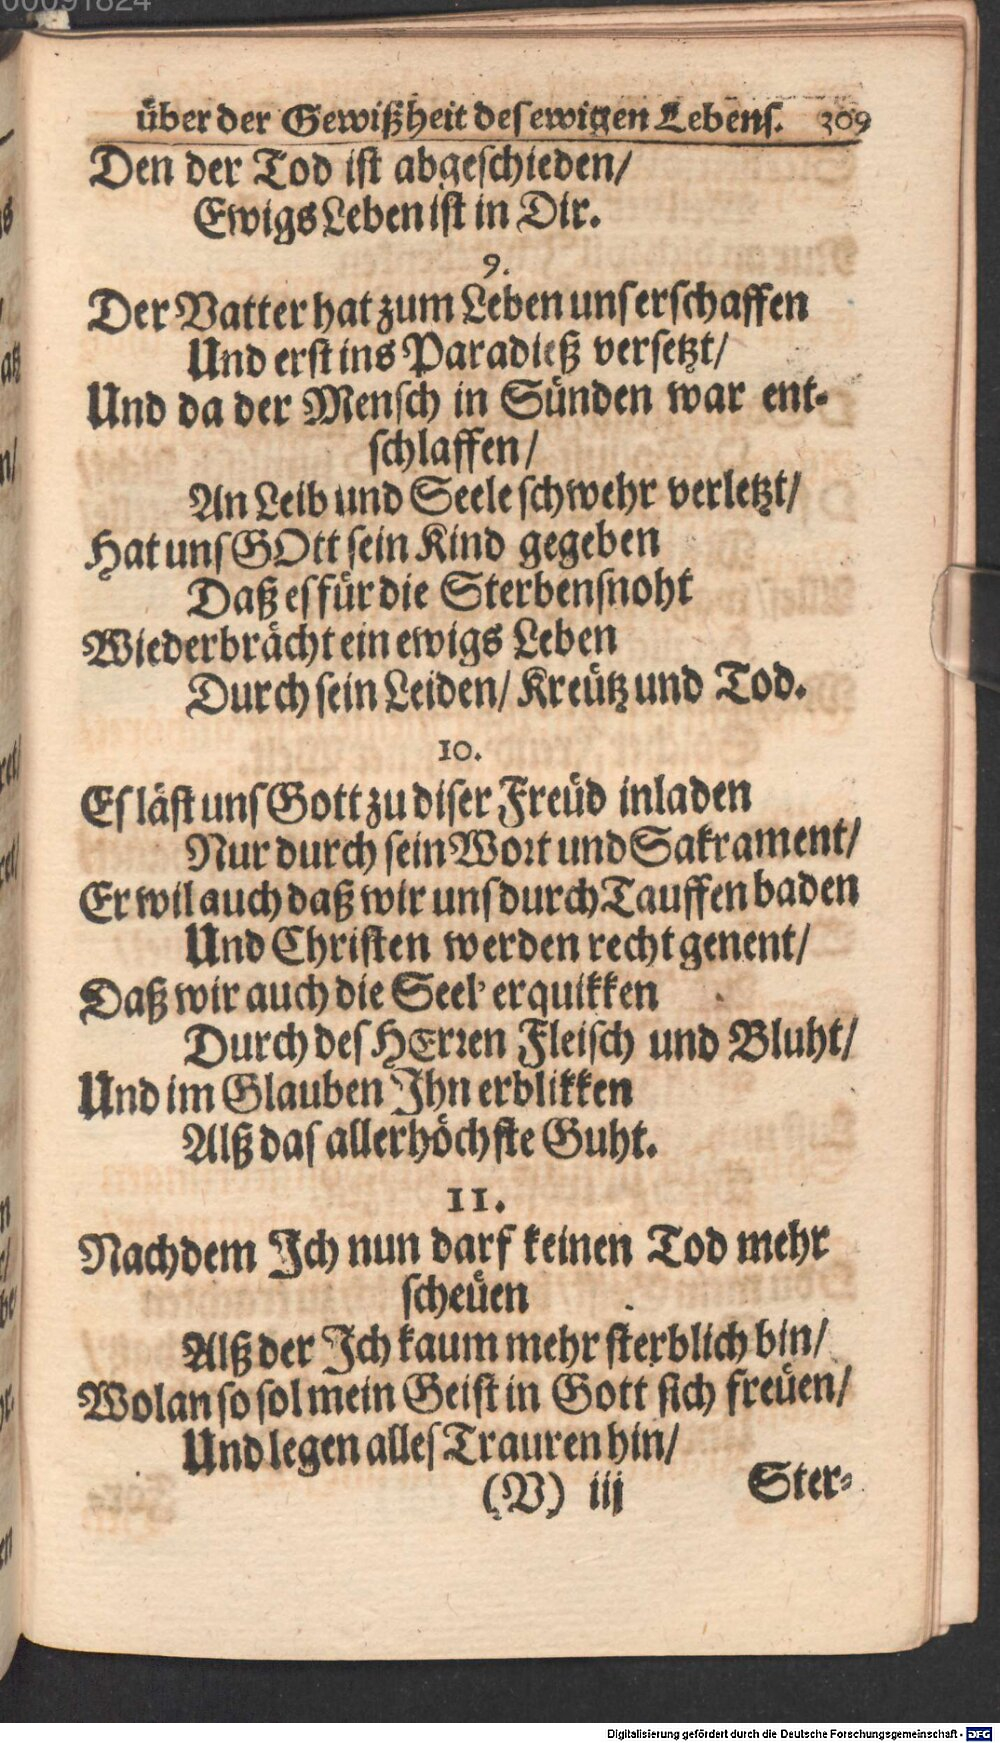 00091824
über der Gewißheit des ewigen Lebens. 309
Den der Tod ist abgeschieden/
Ewigs Leben ist in Dir.
9.
Der Vatter hat zum Leben uns erschaffen
Und erst ins Paradieß versetzt/
Und da der Mensch in Sünden war ent-
schlaffen/
An Leib und Seele schwehr verletzt/
Hat uns GOtt sein Kind gegeben
Daß es für die Sterbensnoht
Wiederbrächt ein ewigs Leben
Durch sein Leiden/ Kreütz und Tod.
10.
Es läst uns Gott zu diser Freüd inladen
Nur durch sein Wort und Sakrament/
Er wil auch daß wir uns durch Tauffen baden
Und Christen werden recht genent/
Daß wir auch die Seel' erquikken
Durch des HErren Fleisch und Bluht/
Und im Glauben Ihn erblikken
Alß das allerhöchste Guht.
11.
Nachdem Ich nun darf keinen Tod mehr
scheüen
Alß der Ich kaum mehr sterblich bin/
Wolan so sol mein Geist in Gott sich freüen/
Und legen alles Trauren hin/
(V) iij Ster-
Digitalisierung gefördert durch die Deutsche Forschungsgemeinschaft - DFG